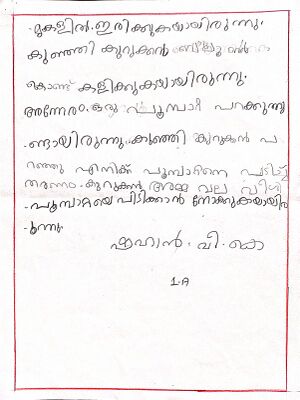 മുകളിൽ ഇരിക്കുകയായിരുന്നു.
കുഞ്ഞി കുറുക്കൻ ബല്ലൂൺ
കൊണ്ട് കളിക്കുകയായിരുന്നു.
അന്നേരം ഒരു പൂമ്പാറ്റ പറക്കുന്നു
ണ്ടായിരുന്നു. കുഞ്ഞി കുറുകൻ പ
റഞ്ഞു എനിക്ക് പൂമ്പാറ്റനെ പിടിച്ച്
തരണം. കുറുകൻ അമ്മ വല വീശി
പൂമ്പാറ്റയെ പിടിക്കാൻ നോക്കുകയായിരു
ന്നു.
ഷഹാൻ. വി. കെ
1-A